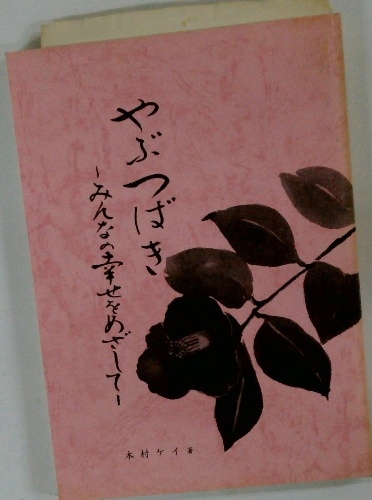 やぶつばき
－みんなの幸せをめざして－
木村ケイ著